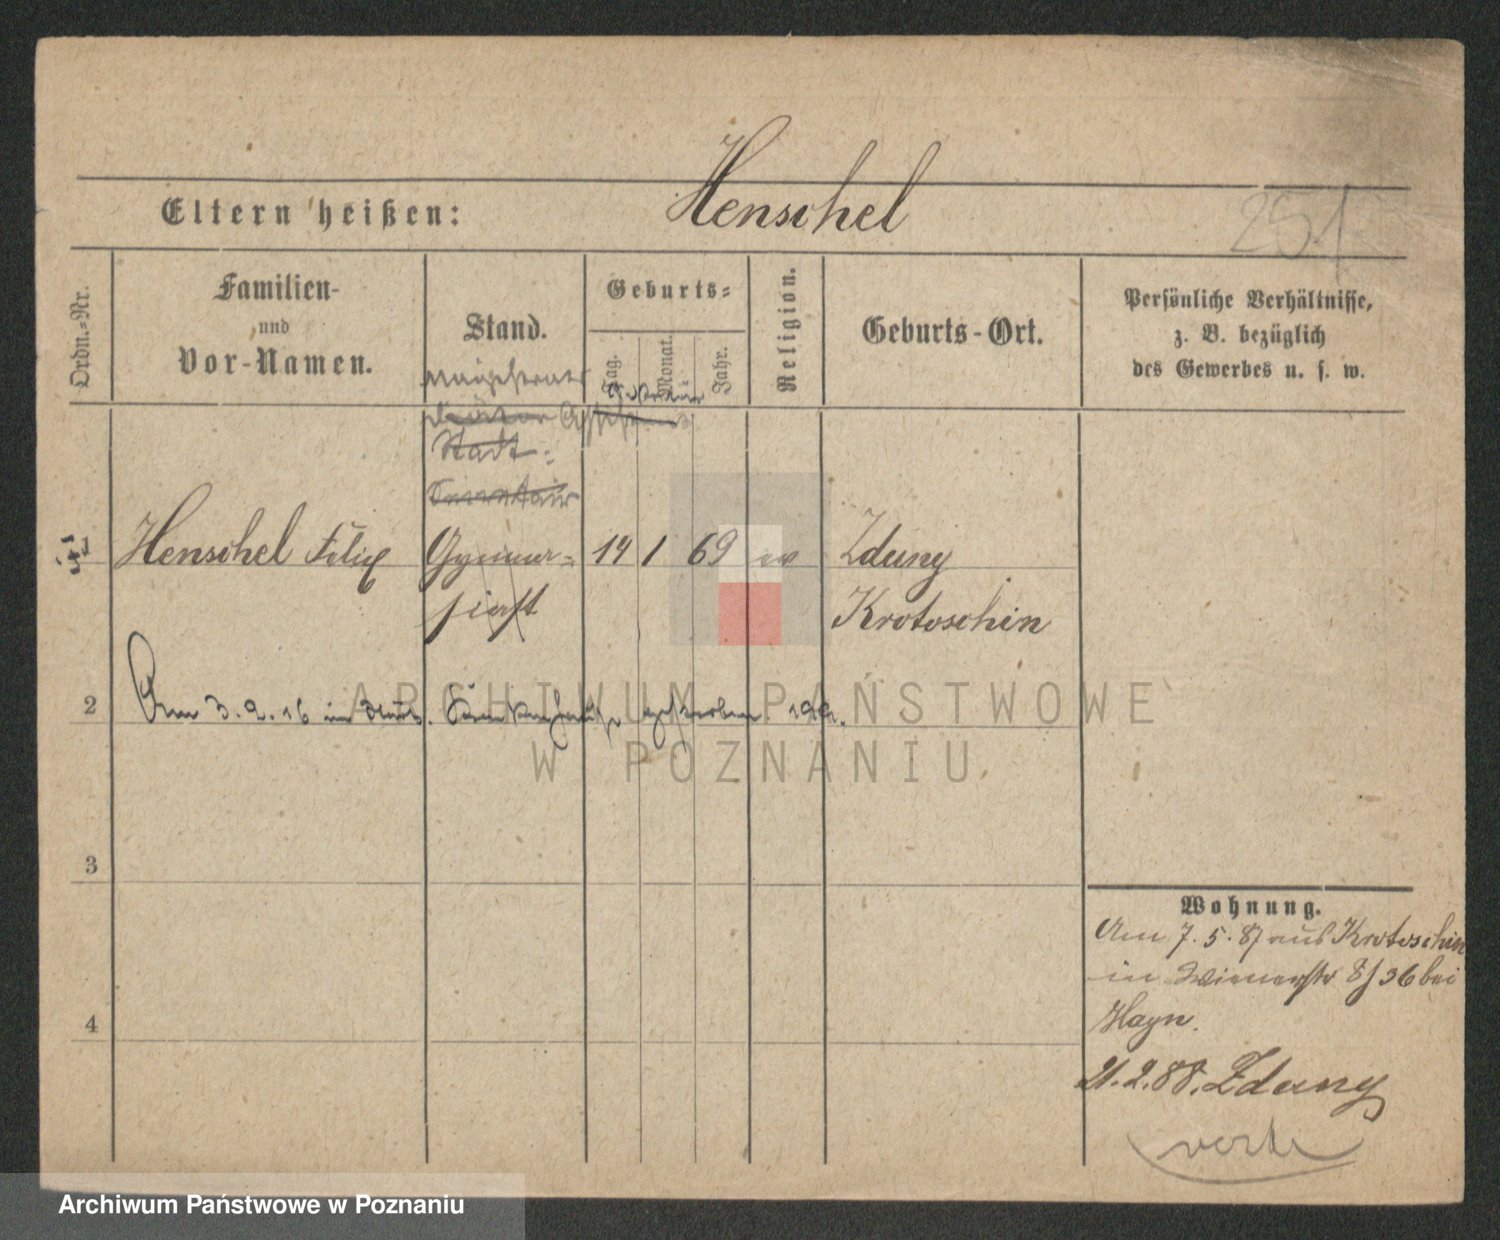 Henschel
Eltern heißen:
251
Ordn.=Nr.
Familien-
und
Vor-Namen.
Stand.
Geburts=
Tag.
Monat.
Jahr.
Religion.
Geburts-Ort.
Persönliche Verhältnisse,
z. B. bezüglich
des Gewerbes u. s. w.
Magistrats
Stadt-
Secretair
1 Henschel Felix Gymna- 14 1 69 ev Zduny
siast Krotoschin
2 Am 3.2.16 im Krankenhause gestorben
3
4
Wohnung.
Am 7.5.87 aus Krotoschin
in Wienerstr 8/36 bei
Hayn.
21.2.88. Zduny
verte
ARCHIWUM PAŃSTWOWE
W POZNANIU
Archiwum Państwowe w Poznaniu